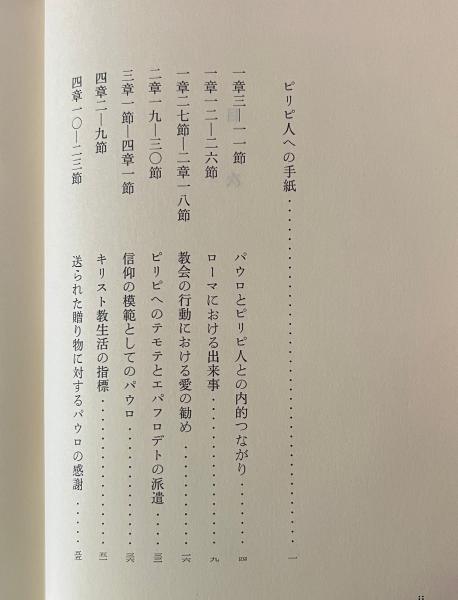 ピリピ人への手紙‥‥‥‥‥‥‥‥‥‥‥‥‥‥‥‥一
一章三―一一節　パウロとピリピ人との内的つながり‥‥‥‥四
一章一二―二六節　ローマにおける出来事‥‥‥‥‥‥九
一章二七節―二章一八節　教会の行動における愛の勧め‥‥‥‥‥一六
二章一九―三〇節　ピリピへのテモテとエパフロデトの派遣‥‥三三
三章一節―四章一節　信仰の模範としてのパウロ‥‥‥‥‥‥三六
四章二―九節　キリスト教生活の指標‥‥‥‥‥‥‥五一
四章一〇―二三節　送られた贈り物に対するパウロの感謝‥‥‥
ii